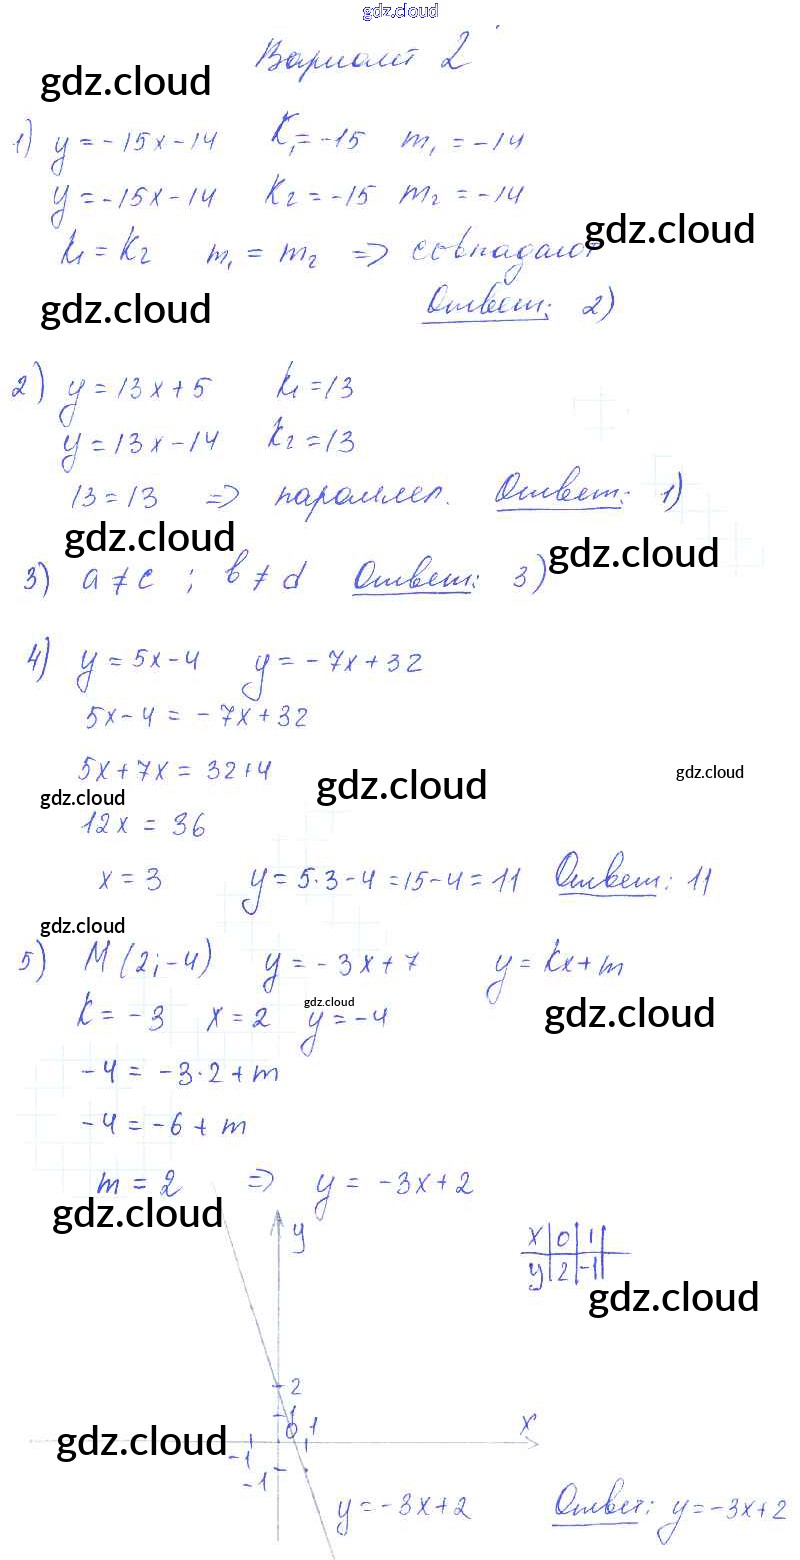 gdz.cloud
Вариант 2
gdz.cloud
1) y = -15x - 14 K₁ = -15 m₁ = -14
y = -15x - 14 K₂ = -15 m₂ = -14
gdz.cloud
k₁ = K₂ m₁ = m₂ => совпадают
gdz.cloud
Ответ: 2)
2) y = 13x + 5 k₁ = 13
y = 13x - 14 K₂ = 13
13 = 13 => параллел. Ответ: 1)
gdz.cloud gdz.cloud
3) a ≠ c ; b ≠ d Ответ: 3)
4) y = 5x - 4 y = - 7x + 32
5x - 4 = - 7x + 32
5x + 7x = 32 + 4
gdz.cloud gdz.cloud gdz.cloud
12x = 36
x = 3 y = 5·3 - 4 = 15 - 4 = 11 Ответ: 11
gdz.cloud
5) M (2; -4) y = - 3x + 7 y = kx + m
gdz.cloud gdz.cloud
K = - 3 x = 2 y = -4
-4 = -3·2 + m
-4 = -6 + m
m = 2 => y = -3x + 2
gdz.cloud
y
x 0 1
y 2 -1
gdz.cloud
2
1
0 1 x
gdz.cloud
-1
-1
y = -3x + 2 Ответ: y = -3x + 2